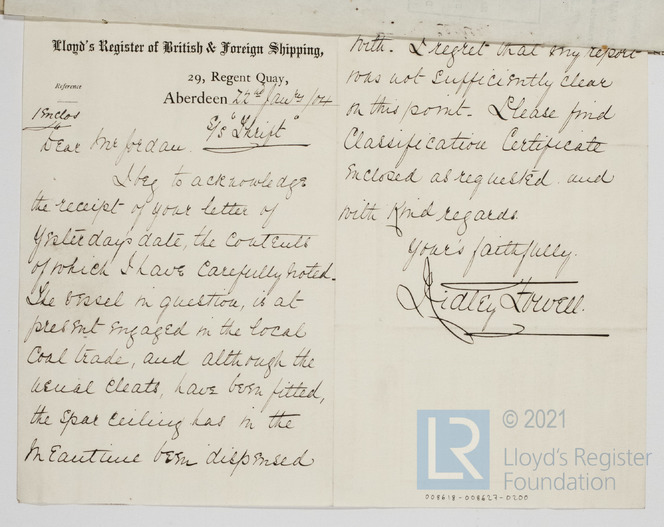 Lloyd's Register of British & Foreign Shipping,
29, Regent Quay,
Reference
Aberdeen 22nd Jany /04
1 Enclos
S/S "Thrift"
Dear Mr Jordan.
I beg to acknowledge
the receipt of your letter of
yesterdays date, the contents
of which I have carefully noted.
The vessel in question, is at
present engaged in the local
coal trade, and although the
usual cleats, have been fitted,
the spar ceiling has in the
meantime been dispensed
with. I regret that my report
was not sufficiently clear
on this point. Please find
Classification Certificate
enclosed as requested. and
with kind regards
Your's faithfully.
Ridley Fowell.
LR
© 2021
Lloyd's Register
Foundation
008618-008627-0200